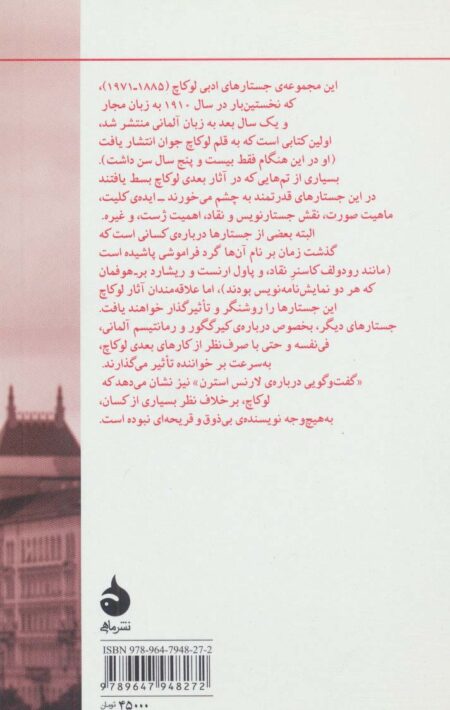 این مجموعه‌ی جستارهای ادبی لوکاچ (۱۸۸۵ـ۱۹۷۱)،
که نخستین‌بار در سال ۱۹۱۰ به زبان مجار
و یک سال بعد به زبان آلمانی منتشر شد،
اولین کتابی است که به قلم لوکاچ جوان انتشار یافت
(او در این هنگام فقط بیست و پنج سال سن داشت).
بسیاری از تم‌هایی‌که در آثار بعدی لوکاچ بسط یافتند
در این جستارهای قدرتمند به چشم می‌خورند ـ ایده‌ی کلیت،
ماهیت صورت، نقش جستارنویس و نقاد، اهمیت ژست، و غیره.
البته بعضی از جستارها درباره‌ی کسانی است که
گذشت زمان بر نام آن‌ها گرد فراموشی پاشیده است
(مانند رودولف کاسنرِ نقاد، و پاول ارنست و ریشارد برـهوفمان
که هر دو نمایش‌نامه‌نویس بودند)، اما علاقه‌مندان آثار لوکاچ
این جستارها را روشنگر و تأثیرگذار خواهند یافت.
جستارهای دیگر، بخصوص درباره‌ی کیرکگور و رمانتیسم آلمانی،
فی‌نفسه و حتی با صرف‌نظر از کارهای بعدی لوکاچ،
به‌سرعت بر خواننده تأثیر می‌گذارند.
«گفت‌وگویی درباره‌ی لارنس استرن» نیز نشان می‌دهد که
لوکاچ، برخلاف نظر بسیاری از کسان،
به‌هیچ‌وجه نویسنده‌ی بی‌ذوق و قریحه‌ای نبوده است.
نشر ماهی
ISBN 978-964-7948-27-2
9 789647 948272
۴۵۰۰۰ تومان